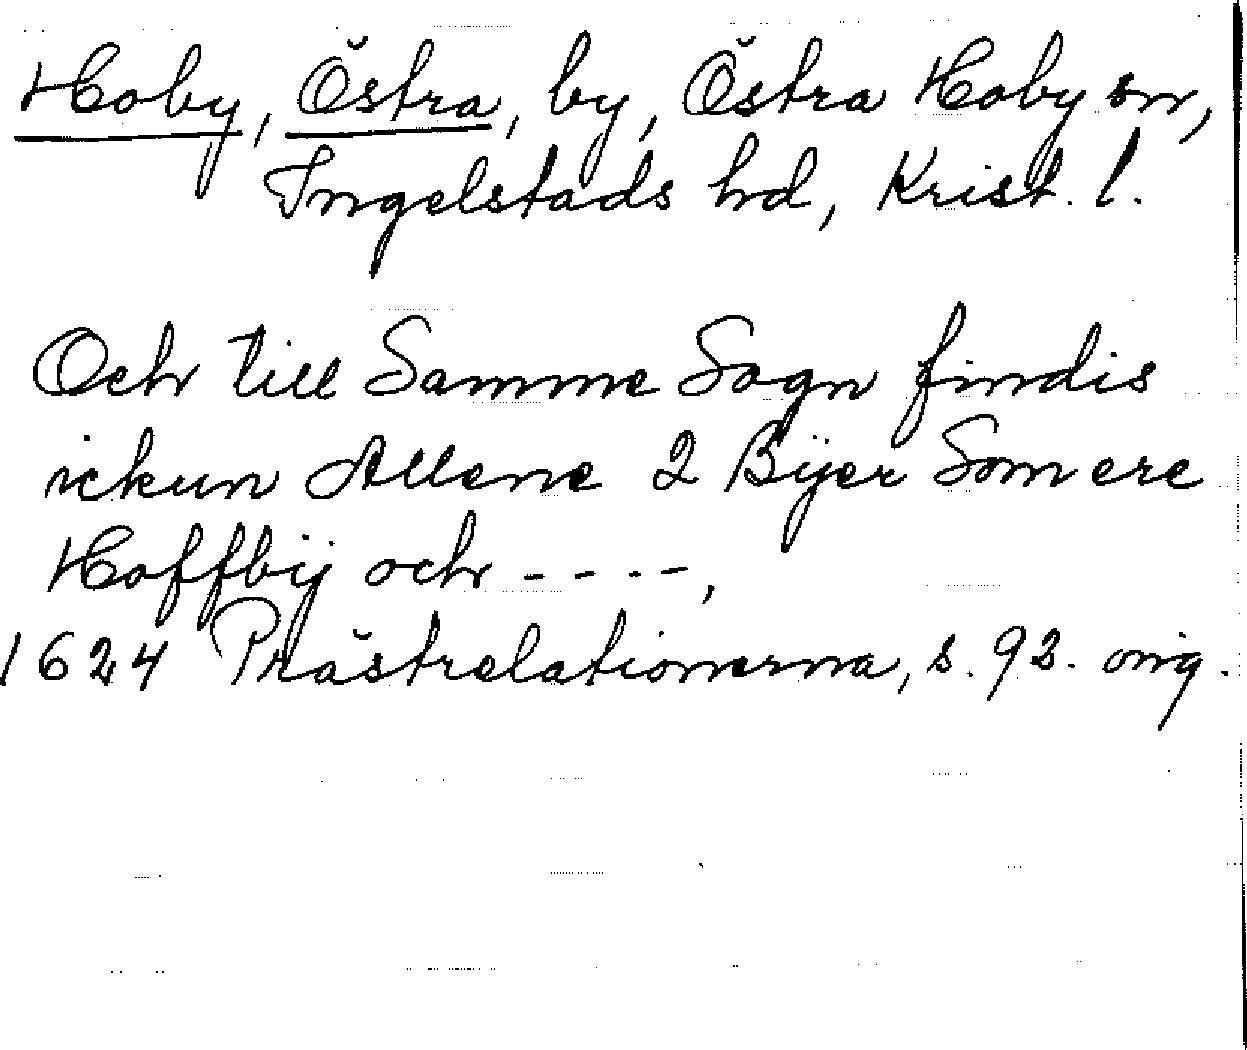 Hoby, Östra, by, Östra Hoby sn,
Ingelstads hd, Krist. l.
Och till Samme Sogn findis
ickun Allene 2 Bÿer Som ere
Hoffbÿ och - - - -,
1624 Prästrelationerna, s. 92. orig.